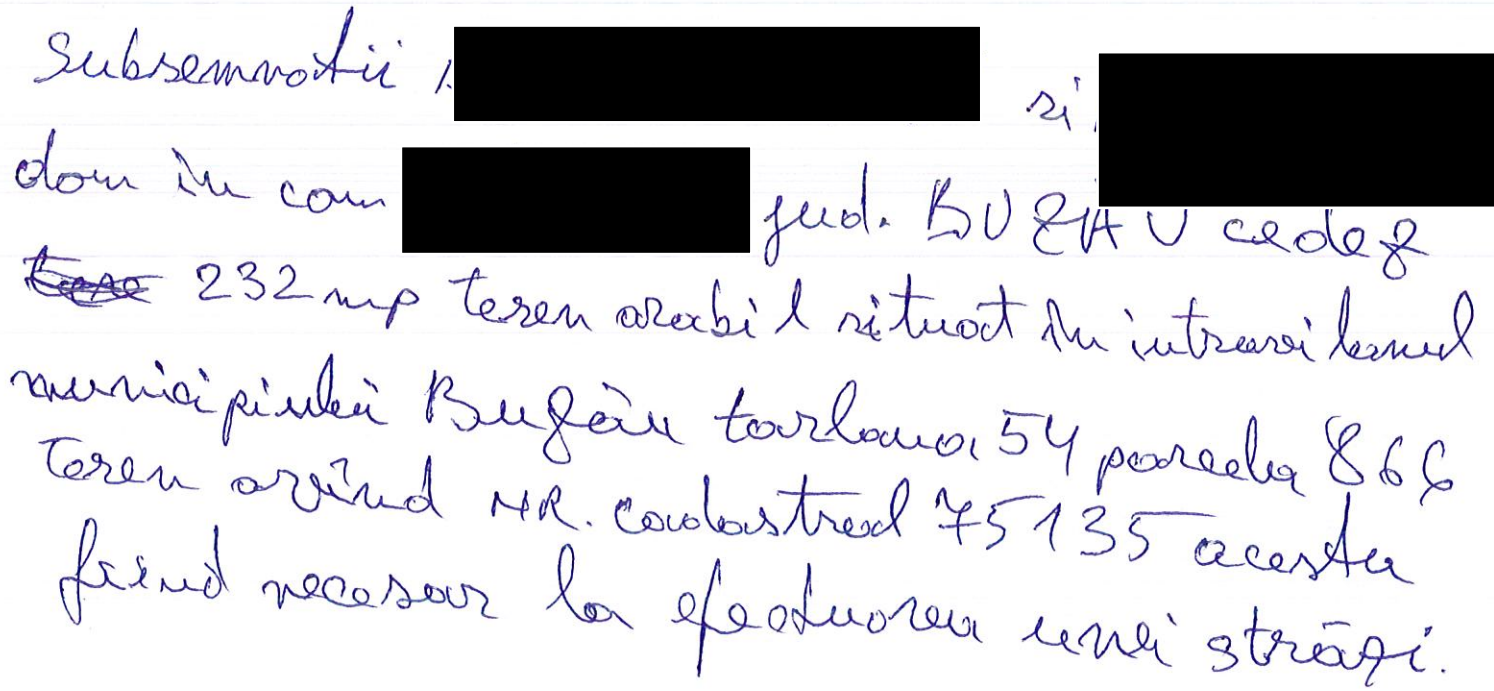 Subsemnatii și
dom în com jud. BUZĂU cedez
232 mp teren arabil situat în intravilanul
municipiului Buzău tarlaua 54 parcela 866
Teren avînd NR. cadastral 75135 acesta
fiind necesar la efectuarea unei străzi.